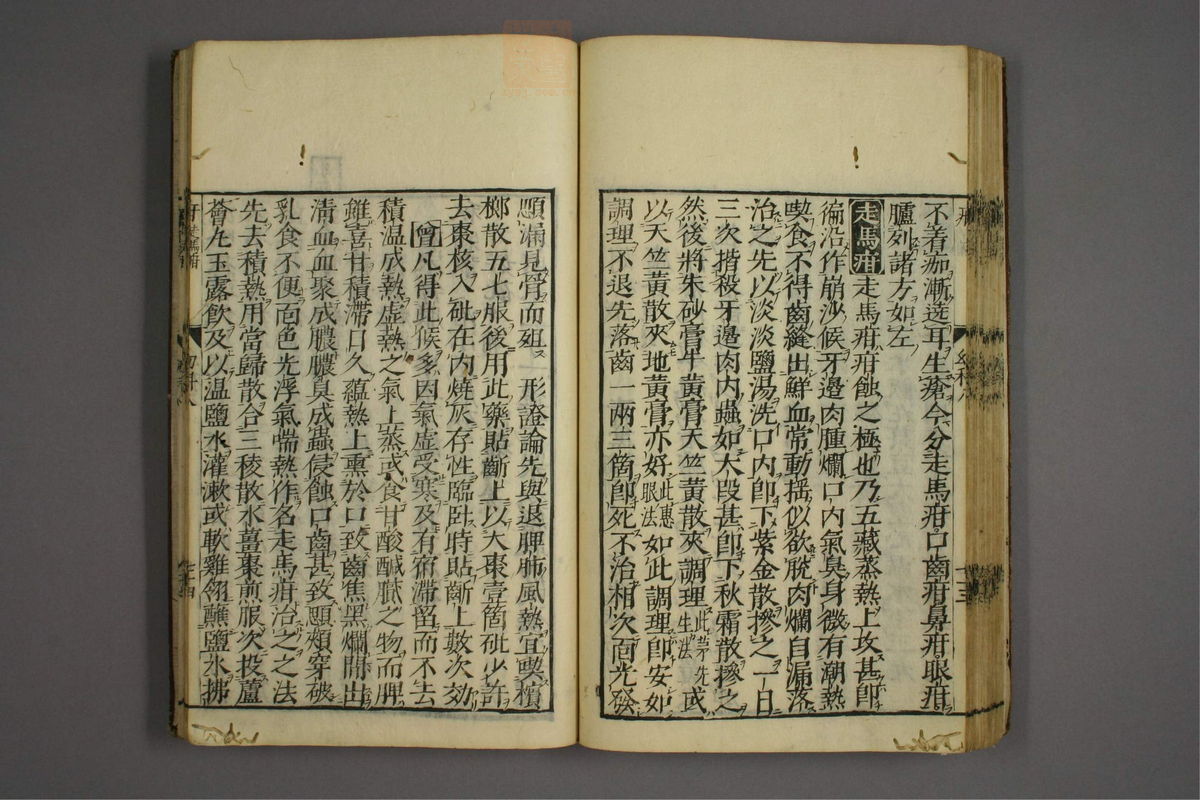 不着痂漸选耳生瘡今分走馬疳口齒疳鼻疳眼疳
臚列諸方如左
走馬疳走馬疳疳蝕之極也乃五藏蒸熱上攻甚即
徧沿作崩沙候牙邊肉腫爛口内氣臭身微有潮熱
喫食不得齒縫出鮮血常動揺似欲脱肉爛自漏落
治之先以淡淡鹽湯洗口内即下紫金散摻之一日
三次揩殺牙邊肉内蟲如大段甚即下秋霜散摻之
然後將朱砂膏牛黄膏天竺黄散夾調理此茅先生法或
以天竺黄散夾地黄膏亦好此惠眼法如此調理即安如
調理不退先落齒一兩三箇即死不治相次面光發
顋漏見骨而殂 形證論先與退脾肺風熱宜喫檳
榔散五七服後用此藥貼齗上以大棗壹箇砒少許
去棗核入砒在内燒灰存性臨卧時貼齗上數次効
曾凡得此候多因氣虚受寒及有宿滯留而不去
積温成熱虚熱之氣上蒸或食甘酸鹹膩之物而脾
雖喜甘積滯日久蘊熱上熏於口致齒焦黑爛間出
清血血聚成膿膿臭成蟲侵蝕口齒甚致顋頰穿破
乳食不便面色光浮氣喘熱作名走馬疳治之之法
先去積熱用當歸散合三稜散水薑棗煎服次投蘆
薈丸玉露飲及以温鹽水灌漱或軟雞翎蘸鹽水拂